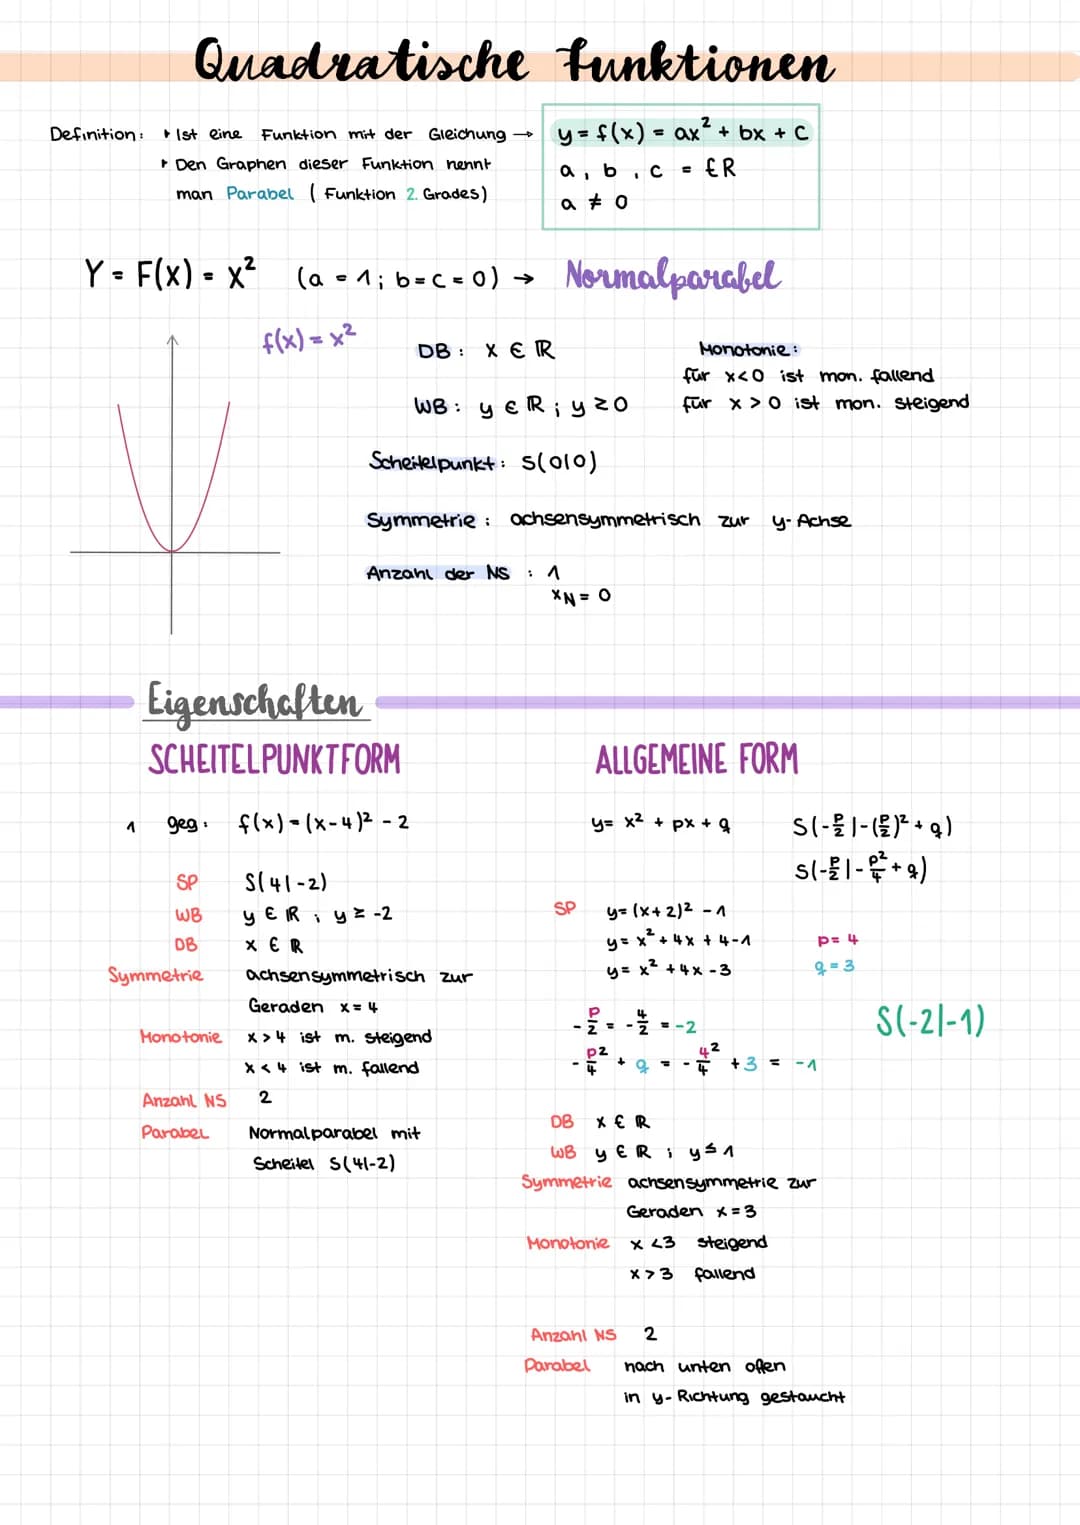 Quadratische Funktionen
Definition: ‣ Ist eine Funktion mit der Gleichung → y = f(x) = ax² + bx + c
‣ Den Graphen dieser Funktion nennt
man Parabel ( Funktion 2. Grades)
a, b, c = ∈ R
a ≠ 0
Y = F(x) = x² (a = 1; b = c = 0) → Normalparabel
f(x) = x²
DB: x ∈ ℝ
WB: y ∈ ℝ; y ≥ 0
Monotonie:
für x<0 ist mon. fallend
für x > 0 ist mon. steigend
Scheitelpunkt: S(0|0)
Symmetrie: achsensymmetrisch zur y-Achse
Anzahl der NS : 1
xN = 0
Eigenschaften
SCHEITELPUNKTFORM
1 geg: f(x) = (x-4)² - 2
SP S(4|-2)
WB y ∈ ℝ; y ≥ -2
DB x ∈ ℝ
Symmetrie achsensymmetrisch zur
Geraden x = 4
Monotonie x > 4 ist m. steigend
x < 4 ist m. fallend
Anzahl NS 2
Parabel Normalparabel mit
Scheitel S(4|-2)
ALLGEMEINE FORM
y = x² + px + q S(-p/2 | -(p/2)² + q)
S(-p/2 | -p²/4 + q)
SP y = (x+2)² - 1
y = x² + 4x + 4 - 1 p = 4
y = x² + 4x - 3 q = 3
-p/2 = -4/2 = -2 S(-2|-1)
-p²/4 + q = -4²/4 + 3 = -1
DB x ∈ ℝ
WB y ∈ ℝ; y ≤ 1
Symmetrie achsensymmetrie zur
Geraden x = 3
Monotonie x < 3 steigend
x > 3 fallend
Anzahl NS 2
Parabel nach unten offen
in y-Richtung gestaucht